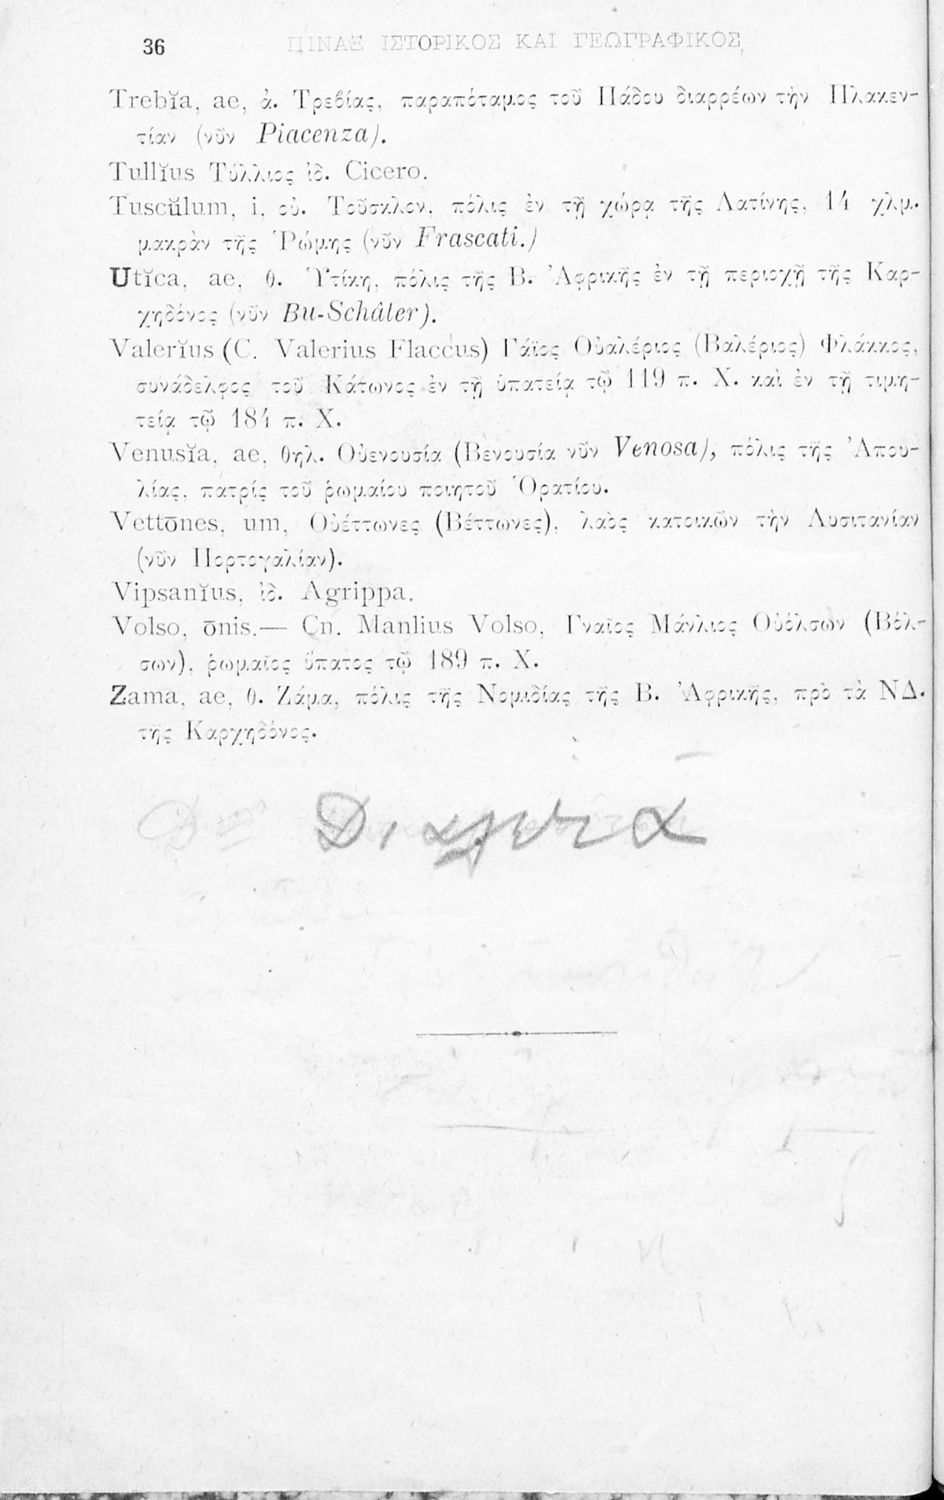 36 ΠΙΝΑΞ ΙΣΤΟΡΙΚΟΣ ΚΑΙ ΓΕΩΓΡΑΦΙΚΟΣ
Trebĭa, ae, ἀ. Τρεβίας, παραπόταμος τοῦ Πάδου διαρρέων τὴν Πλακεν-
τίαν (νῦν Piacenza).
Tullĭus Τύλλιος ἰδ. Cicero.
Tuscŭlum, i, οὐ. Τοῦσκλον, πόλις ἐν τῇ χώρᾳ τῆς Λατίνης, 14 χλμ.
μακρὰν τῆς Ῥώμης (νῦν Frascati.)
Utĭca, ae, θ. Ὑτίκη, πόλις τῆς Β. Ἀφρικῆς ἐν τῇ περιοχῇ τῆς Καρ-
χηδόνος (νῦν Bu-Schâter).
Valerĭus (C. Valerius Flaccus) Γάϊος Οὐαλέριος (Βαλέριος) Φλάκκος,
συνάδελφος τοῦ Κάτωνος ἐν τῇ ὑπατείᾳ τῷ 119 π. Χ. καὶ ἐν τῇ τιμη-
τείᾳ τῷ 184 π. Χ.
Venusĭa, ae, θηλ. Οὐενουσία (Βενουσία νῦν Venosa), πόλις τῆς Ἀπου-
λίας, πατρίς τοῦ ῥωμαίου ποιητοῦ Ὁρατίου.
Vettōnes, um, Οὐέττωνες (Βέττωνες), λαὸς κατοικῶν τὴν Λυσιτανίαν
(νῦν Πορτογαλίαν).
Vipsanĭus, ἰδ. Agrippa.
Volso, ōnis.— Cn. Manlius Volso, Γναῖος Μάνλιος Οὐόλσων (Βόλ-
σων), ῥωμαῖος ὕπατος τῷ 189 π. Χ.
Zama, ae, θ. Ζάμα, πόλις τῆς Νομιδίας τῆς Β. Ἀφρικῆς, πρὸ τὰ ΝΔ.
τῆς Καρχηδόνος.